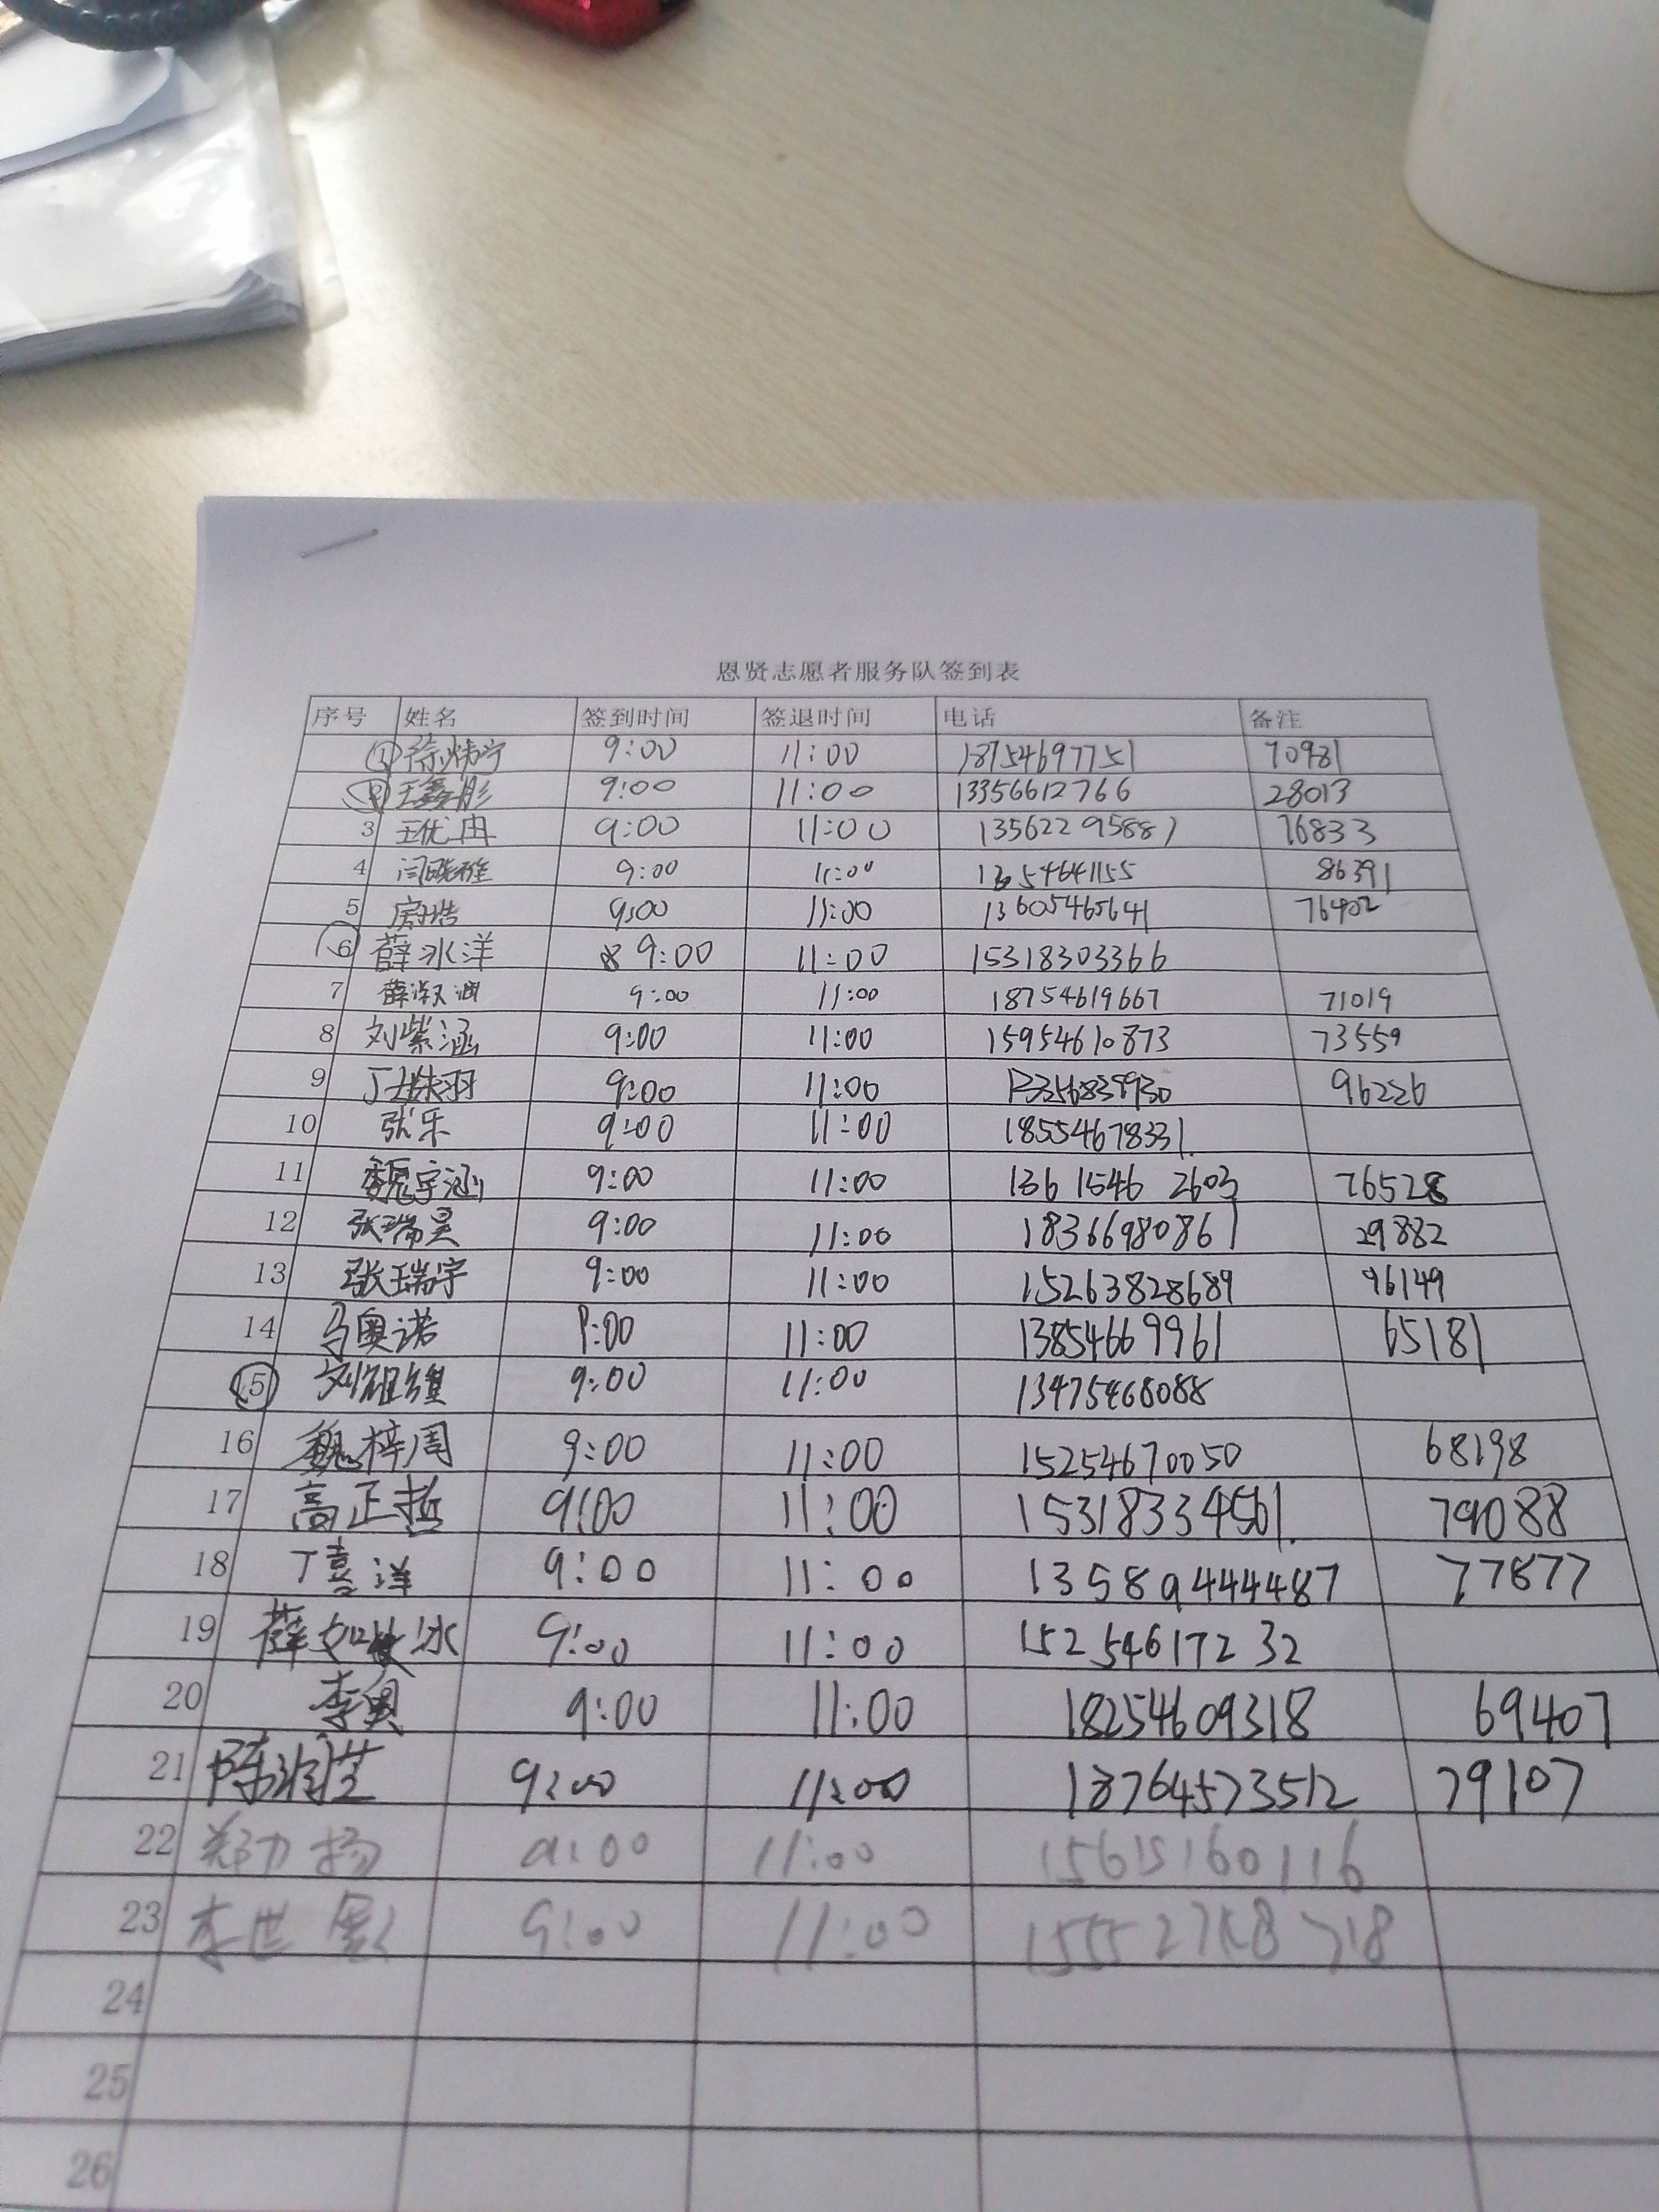 恩贤志愿者服务队签到表
序号 姓名 签到时间 签退时间 电话 备注
① 徐炜宁 9:00 11:00 18754697751 70981
② 王鑫彤 9:00 11:00 13356612766 28013
3 王优冉 9:00 11:00 13562295887 76833
4 闫晓雅 9:00 11:00 86391
5 房浩 9:00 11:00 13605465641 76402
6 薛冰洋 9:00 11:00 15318303366
7 薛淑润 9:00 11:00 18754619667 71019
8 刘紫涵 9:00 11:00 15954610873 73559
9 丁姝羽 9:00 11:00 13356839930 96226
10 张乐 9:00 11:00 18554678331
11 魏宇涵 9:00 11:00 1361546 2603 76528
12 张瑞昊 9:00 11:00 18366980861 29882
13 张瑞宇 9:00 11:00 15263828689 96149
14 马奥诺 9:00 11:00 13854669961 65181
15 刘祖维 9:00 11:00 13475468088
16 魏梓周 9:00 11:00 15254670050 68198
17 高正哲 9:00 11:00 15318334561 79088
18 丁喜洋 9:00 11:00 13589444487 77877
19 薛如冰 9:00 11:00 152546172 32
20 李奥 9:00 11:00 18254609318 69407
21 陈润芝 9:00 11:00 18764573512 79107
22 郑力扬 9:00 11:00 15615160116
23 李世 9:00 11:00
24
25
26